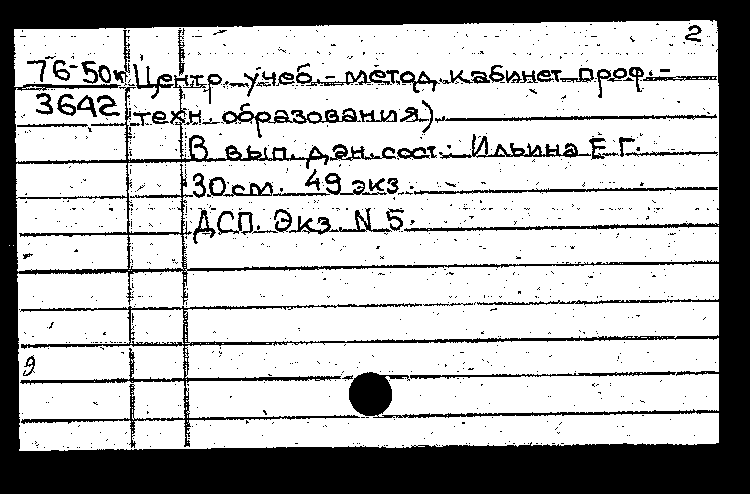 2
76-50к Центр. учеб.- метод. кабинет проф.-
3642 техн. образования).
В вып. дан. сост.: Ильина Е.Г.
30 см. 49 экз.
ДСП. Экз. N 5.
9